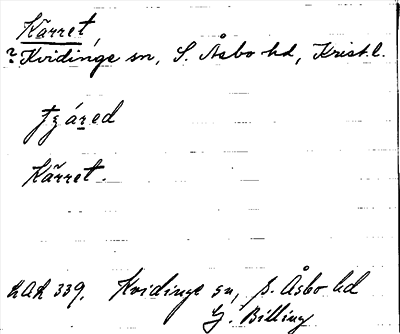 Kärret,
? Kvidinge sn, S. Åsbo hd, Krist.l.
tʒáred
Kärret.
LAL 339. Kvidinge sn, S. Åsbo hd
G. Billing